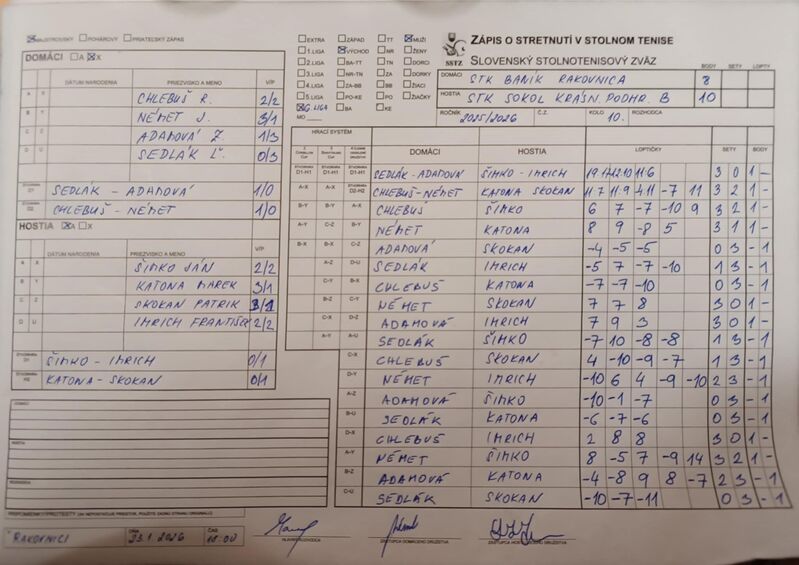 MAJSTROVSKÝ POHÁROVÝ PRIATEĽSKÝ ZÁPAS
DOMÁCI A X
DÁTUM NARODENIA PRIEZVISKO A MENO V/P
A X CHLEBUŠ R. 2/2
B Y NÉMET J. 3/1
C Z ADAMOVÁ Z. 1/3
D U SEDLÁK Ľ. 0/3
D1 SEDLÁK - ADAMOVÁ 1/0
D2 CHLEBUŠ - NÉMET 1/0
HOSTIA A X
DÁTUM NARODENIA PRIEZVISKO A MENO V/P
A X ŠIMKO JÁN 2/2
B Y KATONA MAREK 3/1
C Z SKOKAN PATRIK 3/1
D U IMRICH FRANTIŠEK 2/2
ŠTVORHRA H1 ŠIMKO - IMRICH 0/1
ŠTVORHRA H2 KATONA - SKOKAN 0/1
DOMÁCI
HOSTIA
ROZHODCA
RAKOVNICI DŇA 23.1.2026 ČAS 18:00
EXTRA ZÁPAD TT MUŽI
1. LIGA VÝCHOD NR ŽENY
2. LIGA BA-TT TN DORCI
3. LIGA NR-TN ZA DORKY
4. LIGA ZA-BB BB ŽIACI
5. LIGA PO-KE PO ŽIAČKY
6. LIGA BA KE
MO
SSTZ
ZÁPIS O STRETNUTÍ V STOLNOM TENISE
SLOVENSKÝ STOLNOTENISOVÝ ZVÄZ
BODY SETY LOPTY
DOMÁCI STK BANÍK RAKOVNICA 8
HOSTIA STK SOKOL KRÁSN. PODHR. B 10
ROČNÍK 2025/2026 Č.Z. KOLO 10. ROZHODCA
HRACÍ SYSTÉM DOMÁCI HOSTIA LOPTIČKY SETY BODY
D1-H1 D1-H1 D1-H1 SEDLÁK - ADAMOVÁ ŠIMKO - IMRICH 3 0 1 -
A-X A-X D2-H2 CHLEBUŠ - NÉMET KATONA SKOKAN 11 7 11 -9 4 11 -7 11 3 2 1 -
B-Y B-Y A-X CHLEBUŠ ŠIMKO 6 7 -7 -10 9 3 2 1 -
A-Y C-Z B-Y NÉMET KATONA 8 9 -8 5 3 1 1 -
B-X B-X C-Z ADAMOVÁ SKOKAN -4 -5 -5 0 3 - 1
A-Z D-U SEDLÁK IMRICH -5 7 -7 -10 1 3 - 1
C-Y B-X CHLEBUŠ KATONA -7 -7 -10 0 3 - 1
B-Z C-Y NÉMET SKOKAN 7 7 8 3 0 1 -
C-X D-Z ADAMOVÁ IMRICH 7 9 3 3 0 1 -
A-Y A-U SEDLÁK ŠIMKO -7 10 -8 -8 1 3 - 1
C-X CHLEBUŠ SKOKAN 4 -10 -9 -7 1 3 - 1
D-Y NÉMET IMRICH -10 6 4 -9 -10 2 3 - 1
A-Z ADAMOVÁ ŠIMKO -10 -1 -7 0 3 - 1
B-U SEDLÁK KATONA -6 -7 -6 0 3 - 1
D-X CHLEBUŠ IMRICH 2 8 8 3 0 1 -
A-Y NÉMET ŠIMKO 8 -5 7 -9 14 3 2 1 -
B-Z ADAMOVÁ KATONA -4 -8 9 8 -7 2 3 - 1
C-U SEDLÁK SKOKAN -10 -7 -11 0 3 - 1
HLAVNÝ ROZHODCA ZÁSTUPCA DOMÁCEHO DRUŽSTVA ZÁSTUPCA HOSŤUJÚCEHO DRUŽSTVA